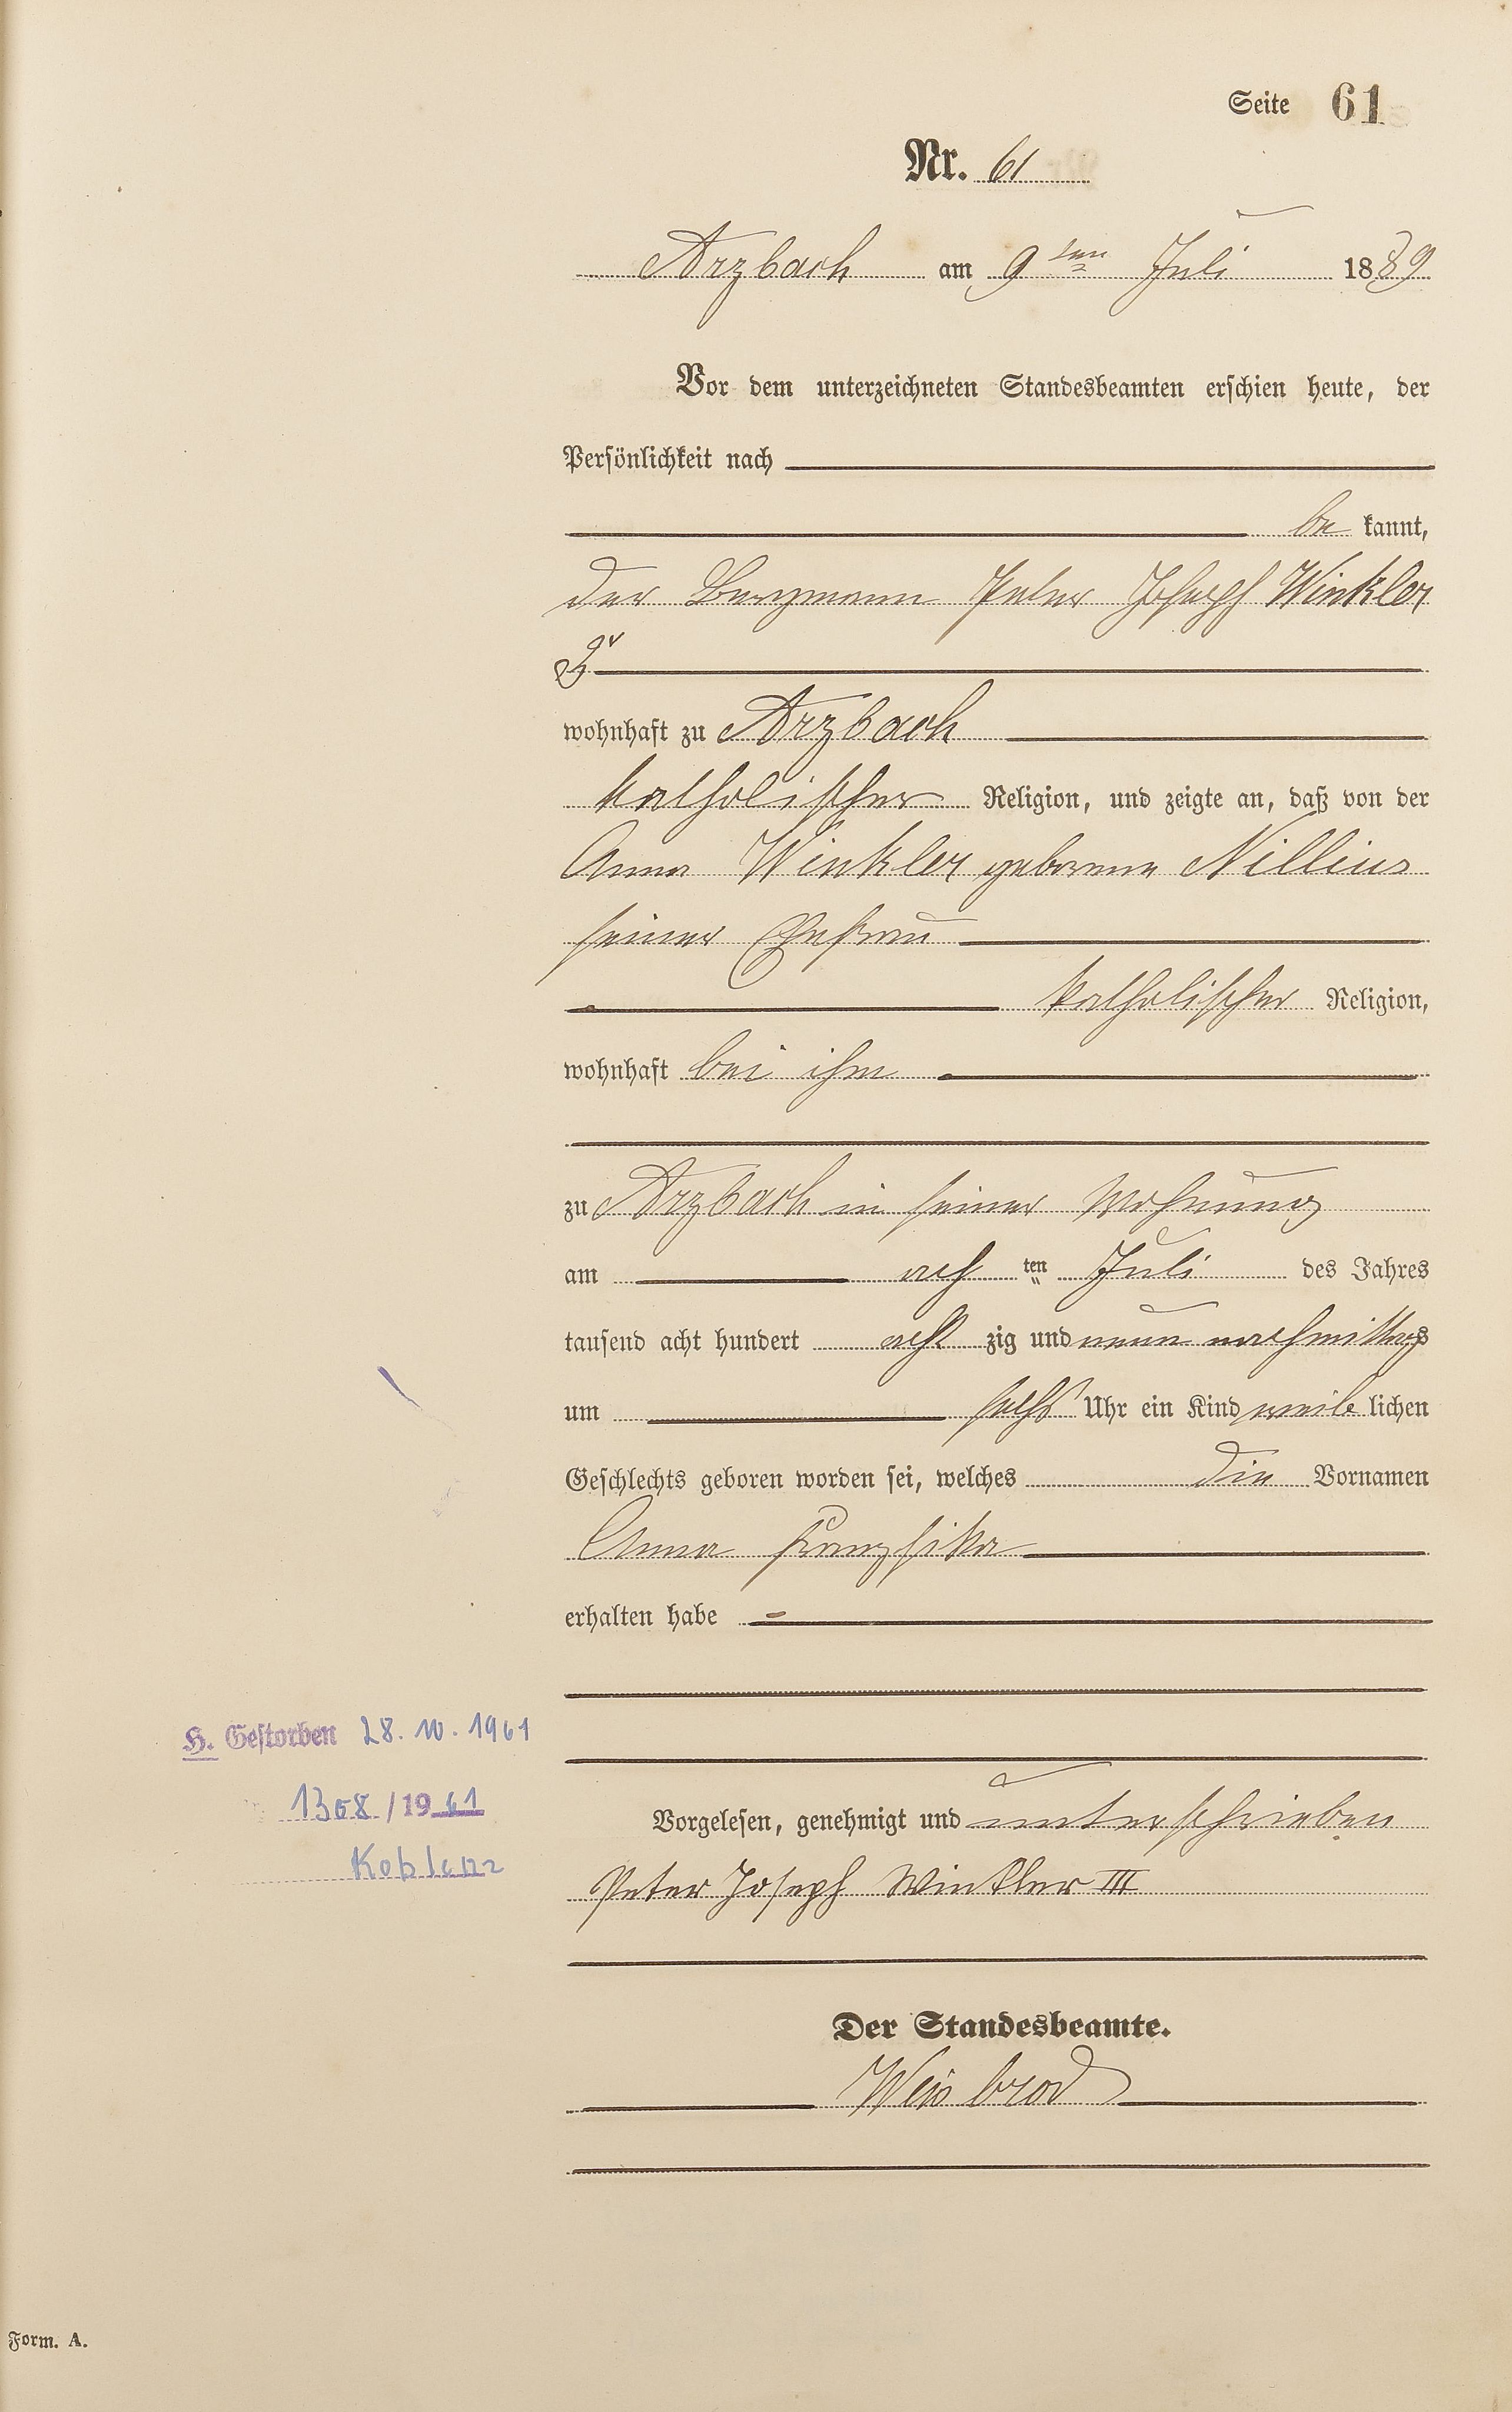 Seite 61
Nr. 61
Arzbach am 9ten Juli 1889
Vor dem unterzeichneten Standesbeamten erschien heute, der
Persönlichkeit nach
be kannt,
der Bergmann Peter Joseph Winkler
3r
wohnhaft zu Arzbach
katholischer Religion, und zeigte an, daß von der
Anna Winkler geborene Nillius
seiner Ehefrau
katholischer Religion,
wohnhaft bei ihm
zu Arzbach in seiner Wohnung
am ach ten Juli des Jahres
tausend acht hundert acht zig und neun nachmittags
um sechs Uhr ein Kind weib lichen
Geschlechts geboren worden sei, welches die Vornamen
Anna Franzsika
erhalten habe
H. Gestorben 28. 10. 1961
1368/1961
Koblenz
Vorgelesen, genehmigt und unterschrieben
Peter Joseph Winkler III
Der Standesbeamte.
Weisbrod
Form. A.